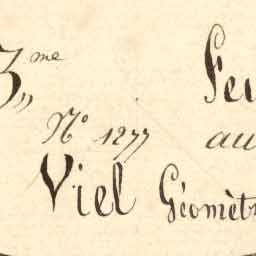 3,, me Feu
N° 1277 au
Viel Géomèt